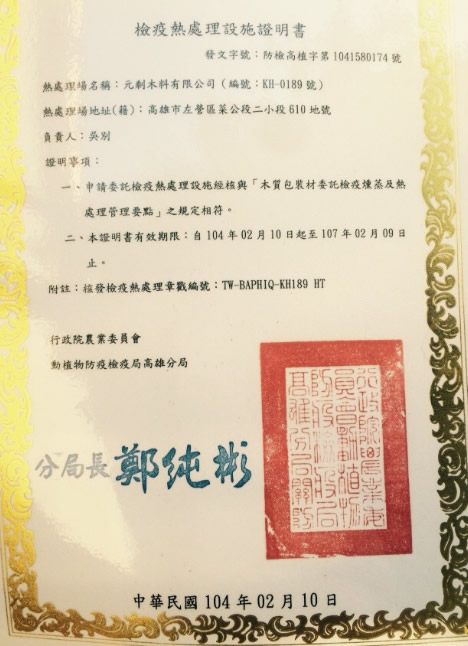 檢疫熱處理設施證明書
發文字號：防檢高植字第1041580174號
熱處理場名稱：元剩木料有限公司（編號：KH-0189號）
熱處理場地址(籍)：高雄市左營區菜公段二小段610地號
負責人：吳別
證明事項：
一、申請委託檢疫熱處理設施經核與「木質包裝材委託檢疫燻蒸及熱
處理管理要點」之規定相符。
二、本證明書有效期限：自104年02月10日起至107年02月09日
止。
附註：核發檢疫熱處理章戳編號：TW-BAPHIQ-KH189 HT
行政院農業委員會
動植物防疫檢疫局高雄分局
分局長 鄭純彬
行政院農業委
員會動植物
防疫檢疫局
高雄分局關防
中華民國104年02月10日